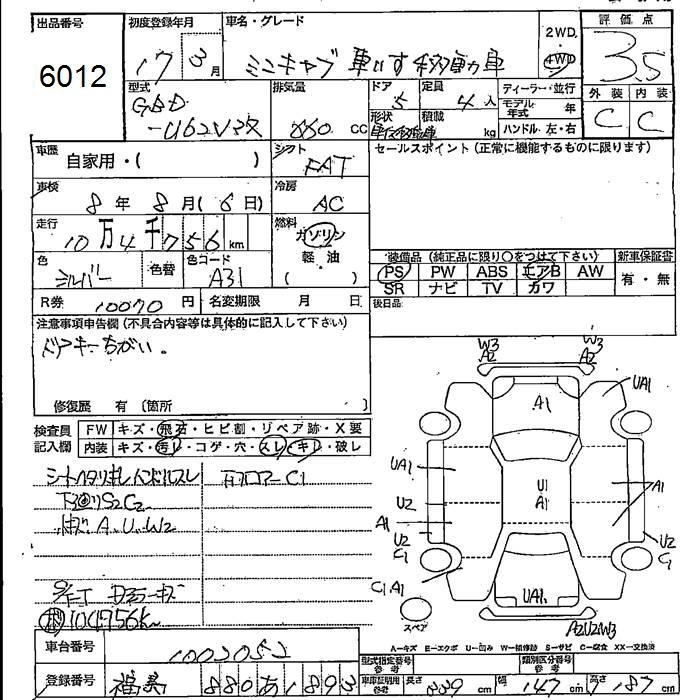 出品番号
6012
初度登録年月
17 3月
車名・グレード
ミニキャブ 車いす移動車
2WD
4WD
評価点
3.5
外装 内装
C C
型式
GBD
-U62V改
排気量
660 CC
ドア
5
定員
4人
形状
積載
kg
ディーラー・並行
モデル年式 年
ハンドル 左・右
車歴
自家用・( )
シフト
FAT
セールスポイント(正常に機能するものに限ります)
車検
8年 8月(6日)
冷房
AC
走行
10万4千756km
燃料
ガソリン
軽・油
( )
色
シルバー
色替
色コード
A31
装備品(純正品に限り〇をつけて下さい)
新車保証書
PS PW ABS エアB AW
SR ナビ TV カワ
有・無
R券 10070円
名変期限 月 日
後日品
注意事項申告欄(不具合内容等は具体的に記入して下さい)
ドアキーちがい。
修復歴 有 〔箇所 〕
検査員記入欄
FW キズ・飛石・ヒビ割・リペア跡・X要
内装 キズ・汚レ・コゲ・穴・スレ・キレ・破レ
シートヘタリキレ ハンドルスレ
下廻りS2C2
キズ A.U.W2
フロアーC1
W3
A2
W3
A2
UA1
A1
UA1
U2
A1
U2
C1
C1 A1
U1
A1
A1
U2
C1
UA1
A2U2W3
スペア
A-キズ E-エクボ U-凹み W-補修跡 S-サビ C-腐食 XX-交換済
車台番号
登録番号
880 あ 1893
型式指定番号
参考
類別区分番号
参考
車庫証明用
参考
長さ 339 cm
幅 147 cm
高さ 187 cm